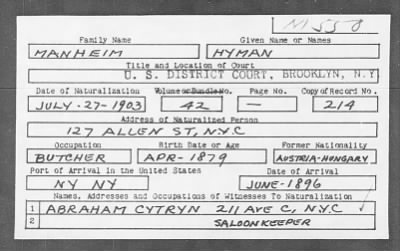 M550
Family Name Given Name or Names
MANHEIM HYMAN
Title and Location of Court
U. S. DISTRICT COURT, BROOKLYN, N.Y
Date of Naturalization Volume or Bundle No. Page No. Copy of Record No.
JULY-27-1903 42 — 214
Address of Naturalized Person
127 ALLEN ST, N.Y.C
Occupation Birth Date or Age Former Nationality
BUTCHER APR-1879 AUSTRIA-HUNGARY
Port of Arrival in the United States Date of Arrival
NY NY JUNE-1896
Names, Addresses and Occupations of Witnesses To Naturalization
1 ABRAHAM CYTRYN 211 AVE C, N.Y.C
2 SALOONKEEPER